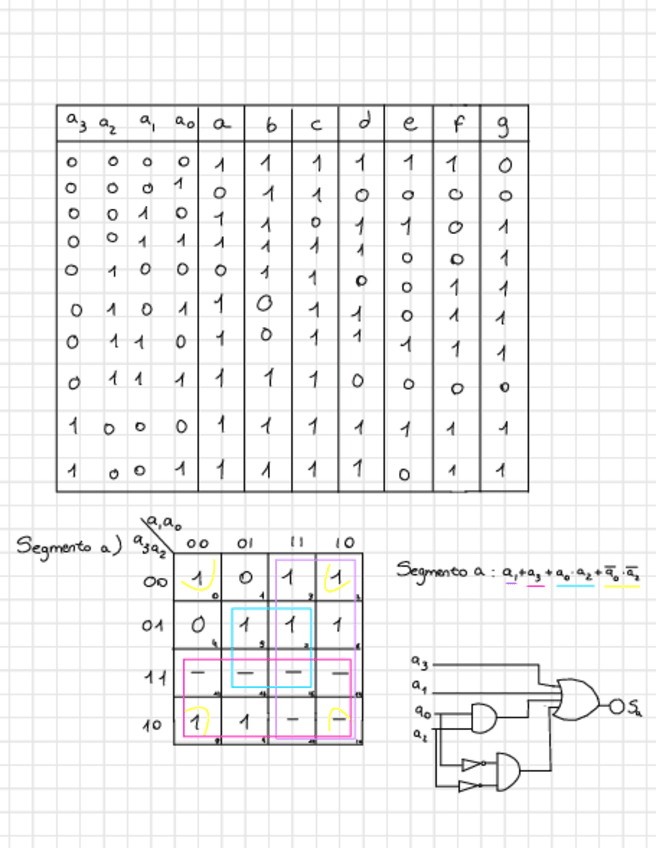 a3 a2 a1 a0 a b c d e f g
0 0 0 0 1 1 1 1 1 1 0
0 0 0 1 0 1 1 0 0 0 0
0 0 1 0 1 1 0 1 1 0 1
0 0 1 1 1 1 1 1 0 0 1
0 1 0 0 0 1 1 0 0 1 1
0 1 0 1 1 0 1 1 0 1 1
0 1 1 0 1 0 1 1 1 1 1
0 1 1 1 1 1 1 0 0 0 0
1 0 0 0 1 1 1 1 1 1 1
1 0 0 1 1 1 1 1 0 1 1
a1a0
Segmento a) a3a2 00 01 11 10
00 1 0 1 1
01 0 1 1 1
11 - - - -
10 1 1 - -
Segmento a : a1+a3+a0·a2+a̅0·a̅2
a3
a1
a0
a2
Sa